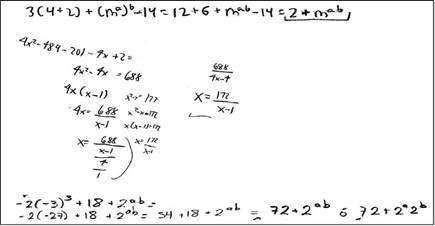 3(4+2) + (mᵃ)ᵇ -14 = 12+6 + mᵃᵇ -14 = 2+mᵃᵇ
4x²-484-201-4x+2=
4x²-4x = 688
4x(x-1)
4x = 688/(x-1)
x = 688/(x-1)/4/1
x = 172/(x-1)
688/(4x-4)
x = 172/(x-1)
-2(-3)³ + 18 + 2ᵃᵇ =
-2(-27) + 18 + 2ᵃᵇ = 54 + 18 + 2ᵃᵇ = 72+2ᵃᵇ ó 72+2ᵃ2ᵇ